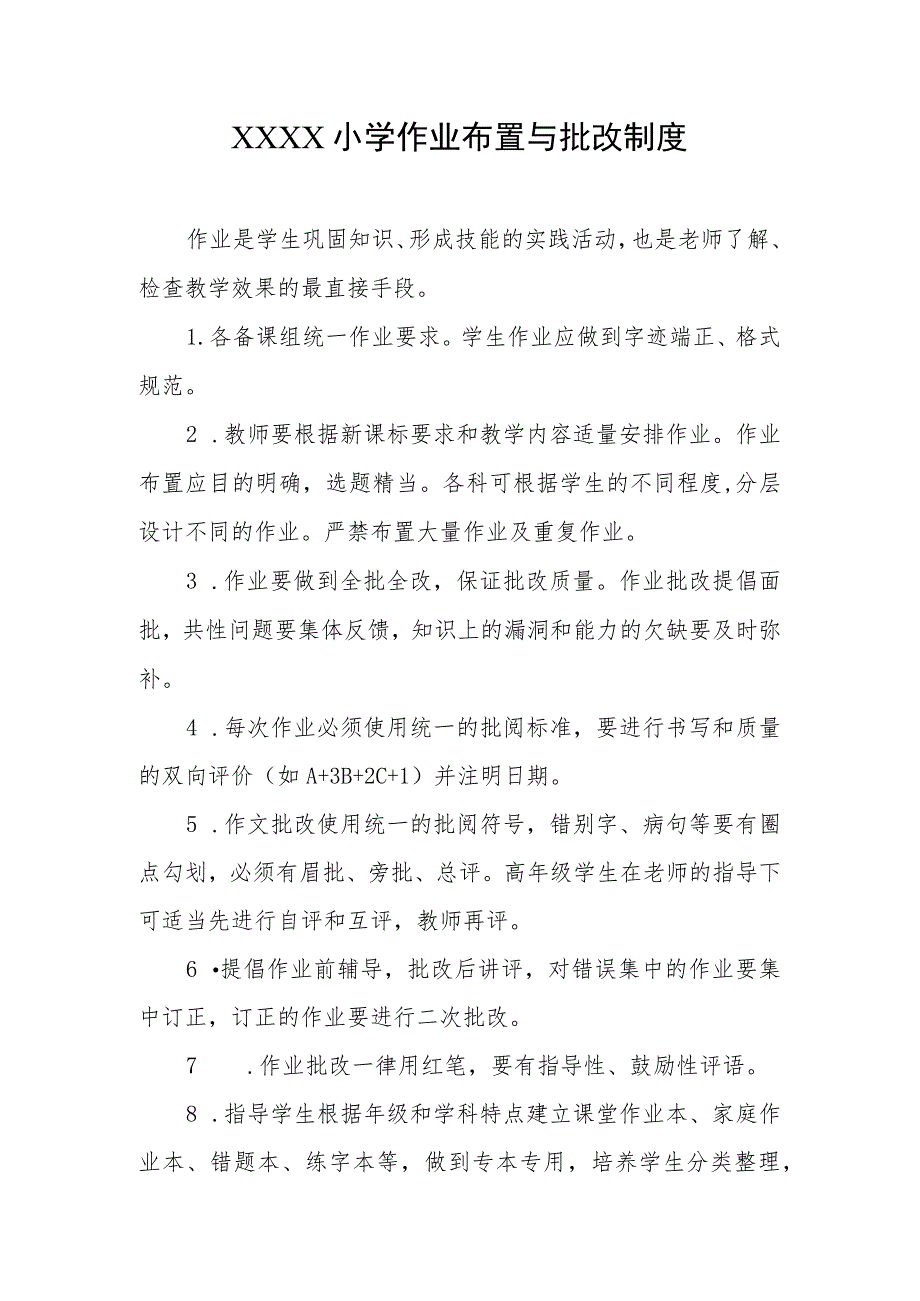 XXXX 小学作业布置与批改制度
作业是学生巩固知识、形成技能的实践活动,也是老师了解、
检查教学效果的最直接手段。
1.各备课组统一作业要求。学生作业应做到字迹端正、格式
规范。
2 .教师要根据新课标要求和教学内容适量安排作业。作业
布置应目的明确，选题精当。各科可根据学生的不同程度,分层
设计不同的作业。严禁布置大量作业及重复作业。
3 .作业要做到全批全改，保证批改质量。作业批改提倡面
批，共性问题要集体反馈，知识上的漏洞和能力的欠缺要及时弥
补。
4 .每次作业必须使用统一的批阅标准，要进行书写和质量
的双向评价（如 A+3B+2C+1）并注明日期。
5 .作文批改使用统一的批阅符号，错别字、病句等要有圈
点勾划，必须有眉批、旁批、总评。高年级学生在老师的指导下
可适当先进行自评和互评，教师再评。
6 •提倡作业前辅导，批改后讲评，对错误集中的作业要集
中订正，订正的作业要进行二次批改。
7 .作业批改一律用红笔，要有指导性、鼓励性评语。
8 .指导学生根据年级和学科特点建立课堂作业本、家庭作
业本、错题本、练字本等，做到专本专用，培养学生分类整理,